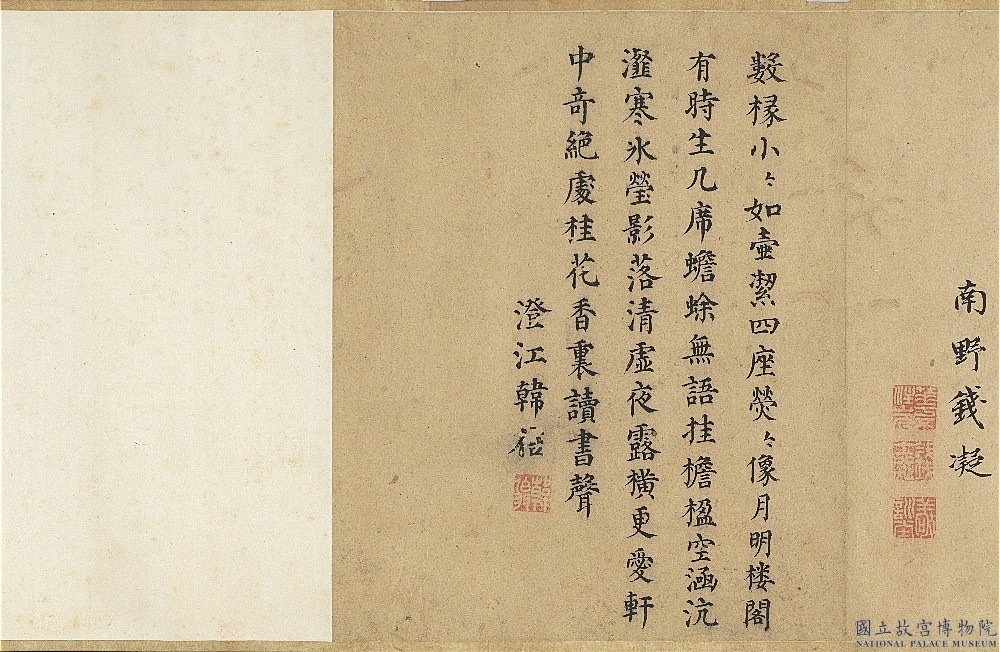 南野錢凝
數椽小々如壺潔四座熒々像月明樓閣
有時生几席蟾蜍無語挂檐楹空涵沆
瀣寒氷瑩影落清虛夜露橫更愛軒
中奇絕處桂花香裏讀書聲
澄江韓
國立故宮博物院
NATIONAL PALACE MUSEUM